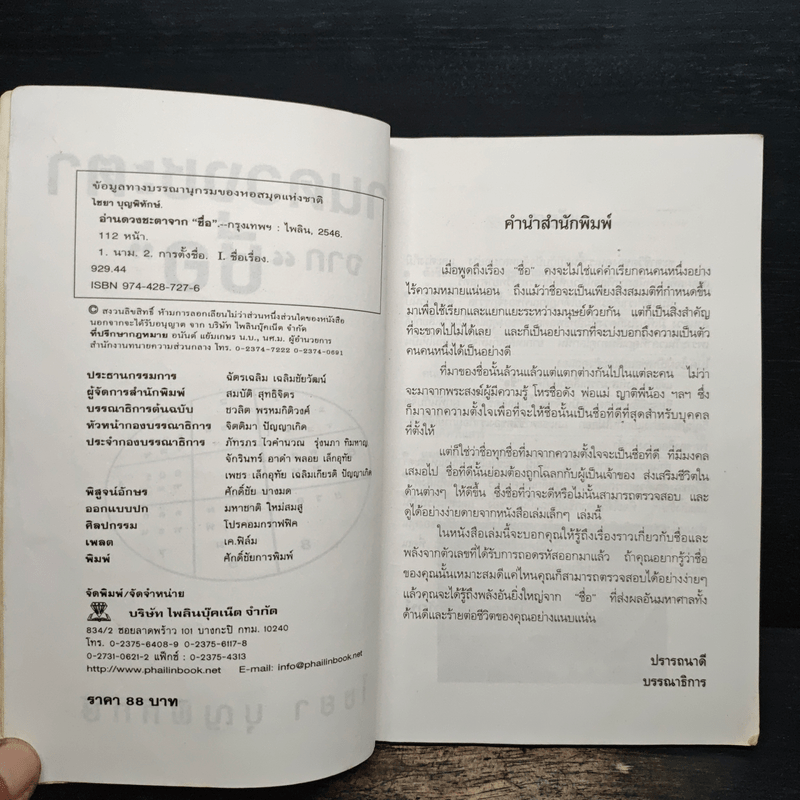 ข้อมูลทางบรรณานุกรมของหอสมุดแห่งชาติ
ไชยา บุญพิทักษ์.
อ่านดวงชะตาจาก "ชื่อ".--กรุงเทพฯ : ไพลิน, 2546.
112 หน้า.
1. นาม. 2. การตั้งชื่อ. I. ชื่อเรื่อง.
929.44
ISBN 974-428-727-6
© สงวนลิขสิทธิ์ ห้ามการลอกเลียนไม่ว่าส่วนหนึ่งส่วนใดของหนังสือ
นอกจากจะได้รับอนุญาต จาก บริษัท ไพลินบุ๊คเน็ต จำกัด
ที่ปรึกษากฎหมาย อนันต์ แย้มเกษร น.บ., นศ.ม. ผู้อำนวยการ
สำนักงานทนายความส่วนกลาง โทร. 0-2374-7222 0-2374-0691
ประธานกรรมการ ฉัตรเฉลิม เฉลิมชัยวัฒน์
ผู้จัดการสำนักพิมพ์ สมบัติ สุทธิจิตร
บรรณาธิการต้นฉบับ ชวลิต พรหมกิติวงศ์
หัวหน้ากองบรรณาธิการ จิตติมา ปัญญาเกิด
ประจำกองบรรณาธิการ ภัทรภร ไวคำนวณ รุ่งนภา ทิมหาญ
จักรินทร์ อาดำ พลอย เล็กอุทัย
เพชร เล็กอุทัย เฉลิมเกียรติ ปัญญาเกิด
พิสูจน์อักษร ศักดิ์ชัย บางมด
ออกแบบปก มหาชาติ ใหม่สมสู
ศิลปกรรม โปรคอมกราฟฟิค
เพลต เค.ฟิล์ม
พิมพ์ ศักดิ์ชัยการพิมพ์
จัดพิมพ์/จัดจำหน่าย
บริษัท ไพลินบุ๊คเน็ต จำกัด
834/2 ซอยลาดพร้าว 101 บางกะปิ กทม. 10240
โทร. 0-2375-6408-9 0-2375-6117-8
0-2731-0621-2 แฟ็กซ์ : 0-2375-4313
http://www.phailinbook.net E-mail: info@phailinbook.net
ราคา 88 บาท
คำนำสำนักพิมพ์
เมื่อพูดถึงเรื่อง "ชื่อ" คงจะไม่ใช่แค่คำเรียกคนคนหนึ่งอย่าง
ไร้ความหมายแน่นอน ถึงแม้ว่าชื่อจะเป็นเพียงสิ่งสมมติที่กำหนดขึ้น
มาเพื่อใช้เรียกและแยกแยะระหว่างมนุษย์ด้วยกัน แต่ก็เป็นสิ่งสำคัญ
ที่จะขาดไปไม่ได้เลย และก็เป็นอย่างแรกที่จะบ่งบอกถึงความเป็นตัว
คนคนหนึ่งได้เป็นอย่างดี
ที่มาของชื่อนั้นล้วนแล้วแต่แตกต่างกันไปในแต่ละคน ไม่ว่า
จะมาจากพระสงฆ์ผู้มีความรู้ โหรชื่อดัง พ่อแม่ ญาติพี่น้อง ฯลฯ ซึ่ง
ก็มาจากความตั้งใจเพื่อที่จะให้ชื่อนั้นเป็นชื่อที่ดีที่สุดสำหรับบุคคล
ที่ตั้งให้
แต่ก็ใช่ว่าชื่อทุกชื่อที่มาจากความตั้งใจจะเป็นชื่อที่ดี ที่มีมงคล
เสมอไป ชื่อที่ดีนั้นย่อมต้องถูกโฉลกกับผู้เป็นเจ้าของ ส่งเสริมชีวิตใน
ด้านต่างๆ ให้ดีขึ้น ซึ่งชื่อที่ว่าจะดีหรือไม่นั้นสามารถตรวจสอบ และ
ดูได้อย่างง่ายดายจากหนังสือเล่มเล็กๆ เล่มนี้
ในหนังสือเล่มนี้จะบอกคุณให้รู้ถึงเรื่องราวเกี่ยวกับชื่อและ
พลังจากตัวเลขที่ได้รับการถอดรหัสออกมาแล้ว ถ้าคุณอยากรู้ว่าชื่อ
ของคุณนั้นเหมาะสมดีแค่ไหนคุณก็สามารถตรวจสอบได้อย่างง่ายๆ
แล้วคุณจะได้รู้ถึงพลังอันยิ่งใหญ่จาก "ชื่อ" ที่ส่งผลอันมหาศาลทั้ง
ด้านดีและร้ายต่อชีวิตของคุณอย่างแนบแน่น
ปรารถนาดี
บรรณาธิการ